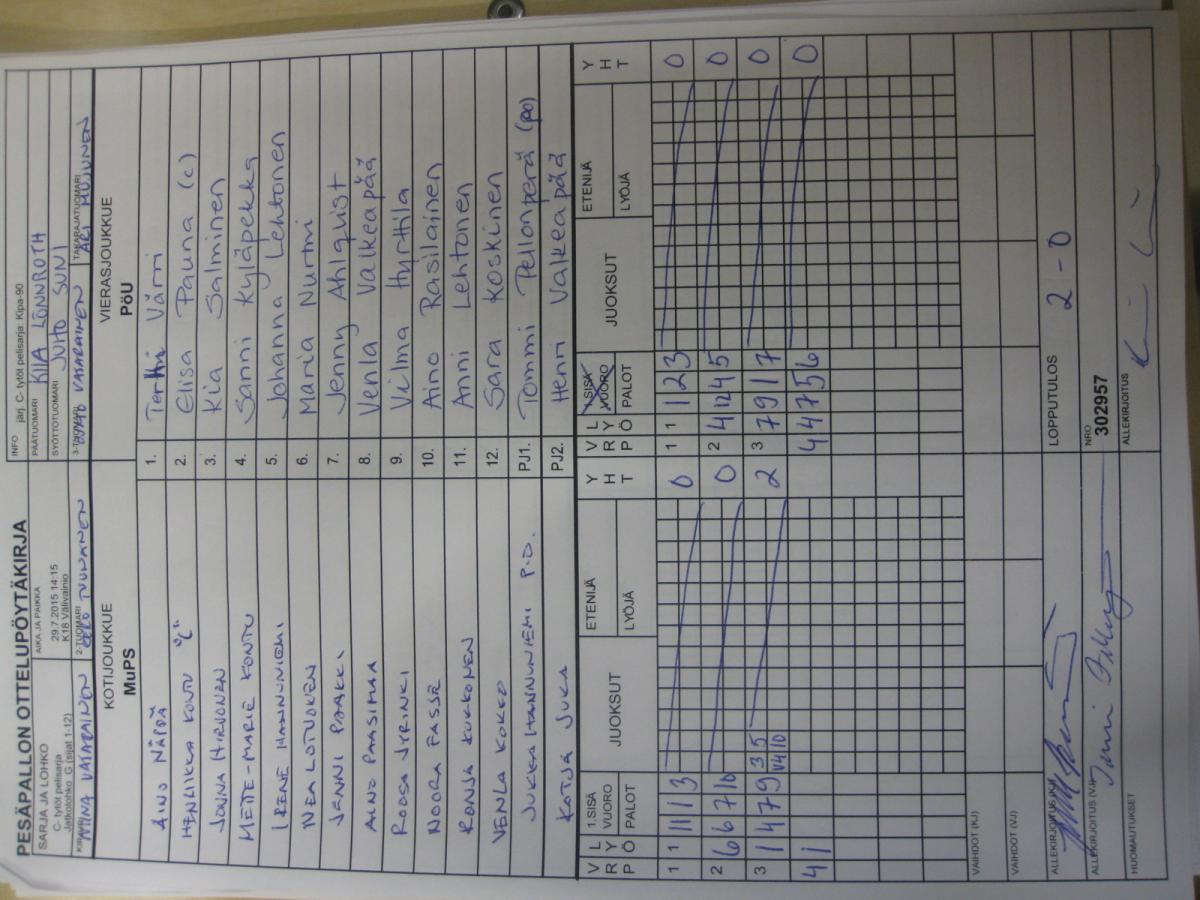 PESÄPALLON OTTELUPÖYTÄKIRJA
SARJA JA LOHKO
C- tytöt pelisarja
Jatkolohko, G (sijat 1-12)
AIKA JA PAIKKA
29.7.2015 14:15
K18 Välivainio
INFO järj. C- tytöt pelisarja: Kipa-90
PÄÄTUOMARI KIIA LÖNNROTH
SYÖTTÖTUOMARI JUHO SUNI
NINA VASARAINEN
2-TUOMARI EERO TUUNANEN
3-TUOMARI VASARAINEN
TAKARAJATUOMARI ARI MUJUNEN
KOTIJOUKKUE
MuPS
VIERASJOUKKUE
PöU
AINO NÄPPÄ 1. Terhi Värri
HENLIKKA KONTU "C" 2. Elisa Pauna (c)
JONNA HIRVONEN 3. Kia Salminen
METTE-MARIE KONTU 4. Sanni Kyläpekka
IRENE HANNUNIEMI 5. Johanna Lehtonen
NEA LOTVONEN 6. Maria Nurmi
JENNI PAAKKI 7. Jenny Ahlquist
AINO PAASIMAA 8. Venla Valkeapää
ROOSA JYRINKI 9. Vilma Hyrttilä
NOORA FASSE 10. Aino Rasilainen
RONJA KUKKONEN 11. Anni Lehtonen
VENLA KOKKO 12. Sara Koskinen
JUKKA HANNUNIEMI P.D. PJ1. Tommi Pellonperä (po)
KOTJA JUKA PJ2. Henri Valkeapää
V R P L Y Ö 1.SISÄ VUORO PALOT JUOKSUT ETENIJÄ LYÖJÄ Y H T V R P L Y Ö 1.SISÄ VUORO PALOT JUOKSUT ETENIJÄ LYÖJÄ Y H T
1 1 1 1 3 0 1 1 1 2 3 0
2 6 6 7 10 0 2 4 12 4 5 0
3 1 4 7 9 3 5 V4 10 2 3 7 9 1 7 0
4 1 4 4 7 5 6 0
VAIHDOT (KJ)
VAIHDOT (VJ)
ALLEKIRJOITUS (KJ)
LOPPUTULOS 2 - 0
ALLEKIRJOITUS (VJ)
NRO
302957
HUOMAUTUKSET
ALLEKIRJOITUS